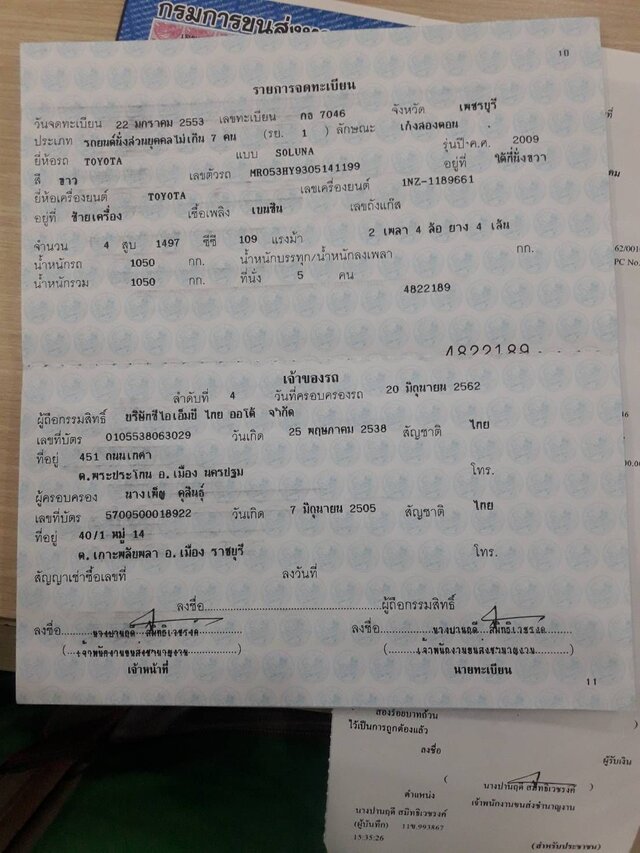 กรมการขนส่งทาง
10
รายการจดทะเบียน
วันจดทะเบียน 22 มกราคม 2553 เลขทะเบียน กอ 7046 จังหวัด เพชรบุรี
ประเภท รถยนต์นั่งส่วนบุคคลไม่เกิน 7 คน (รย. 1 ) ลักษณะ เก๋งสองตอน
ยี่ห้อรถ TOYOTA แบบ SOLUNA รุ่นปี ค.ศ. 2009
สี ขาว เลขตัวรถ MR053HY9305141199 อยู่ที่ ใต้ที่นั่งขวา
ยี่ห้อเครื่องยนต์ TOYOTA เลขเครื่องยนต์ 1NZ-1189661
อยู่ที่ ซ้ายเครื่อง เชื้อเพลิง เบนซิน เลขถังแก๊ส
จำนวน 4 สูบ 1497 ซีซี 109 แรงม้า 2 เพลา 4 ล้อ ยาง 4 เส้น
น้ำหนักรถ 1050 กก. น้ำหนักบรรทุก/น้ำหนักลงเพลา กก.
น้ำหนักรวม 1050 กก. ที่นั่ง 5 คน
4822189
4822189
เจ้าของรถ
ลำดับที่ 4 วันที่ครอบครองรถ 20 มิถุนายน 2562
ผู้ถือกรรมสิทธิ์ บริษัทซีไอเอ็มบี ไทย ออโต้ จำกัด
เลขที่บัตร 0105538063029 วันเกิด 25 พฤษภาคม 2538 สัญชาติ ไทย
ที่อยู่ 451 ถนนเทศา
ต.พระประโทน อ.เมือง นครปฐม โทร.
ผู้ครอบครอง นางเพ็ญ
เลขที่บัตร 5700500018922 วันเกิด 7 มิถุนายน 2505 สัญชาติ ไทย
ที่อยู่ 40/1 หมู่ 14
ต.เกาะพลับพลา อ.เมือง ราชบุรี โทร.
สัญญาเช่าซื้อเลขที่ ลงวันที่
ลงชื่อ ผู้ถือกรรมสิทธิ์
ลงชื่อ นางปานฤดี สมิทธิเวชรงค์ ลงชื่อ นางปานฤดี สมิทธิเวชรงค์
(เจ้าพนักงานขนส่งชำนาญงาน) (เจ้าพนักงานขนส่งชำนาญงาน)
เจ้าหน้าที่ นายทะเบียน
11
สองร้อยบาทถ้วน
ไว้เป็นการถูกต้องแล้ว
ลงชื่อ ผู้รับเงิน
( นางปานฤดี สมิทธิเวชรงค์ )
ตำแหน่ง เจ้าพนักงานขนส่งชำนาญงาน
นางปานฤดี สมิทธิเวชรงค์
(ผู้บันทึก) 11ข.993867
15:35:26
(สำหรับประชาชน)